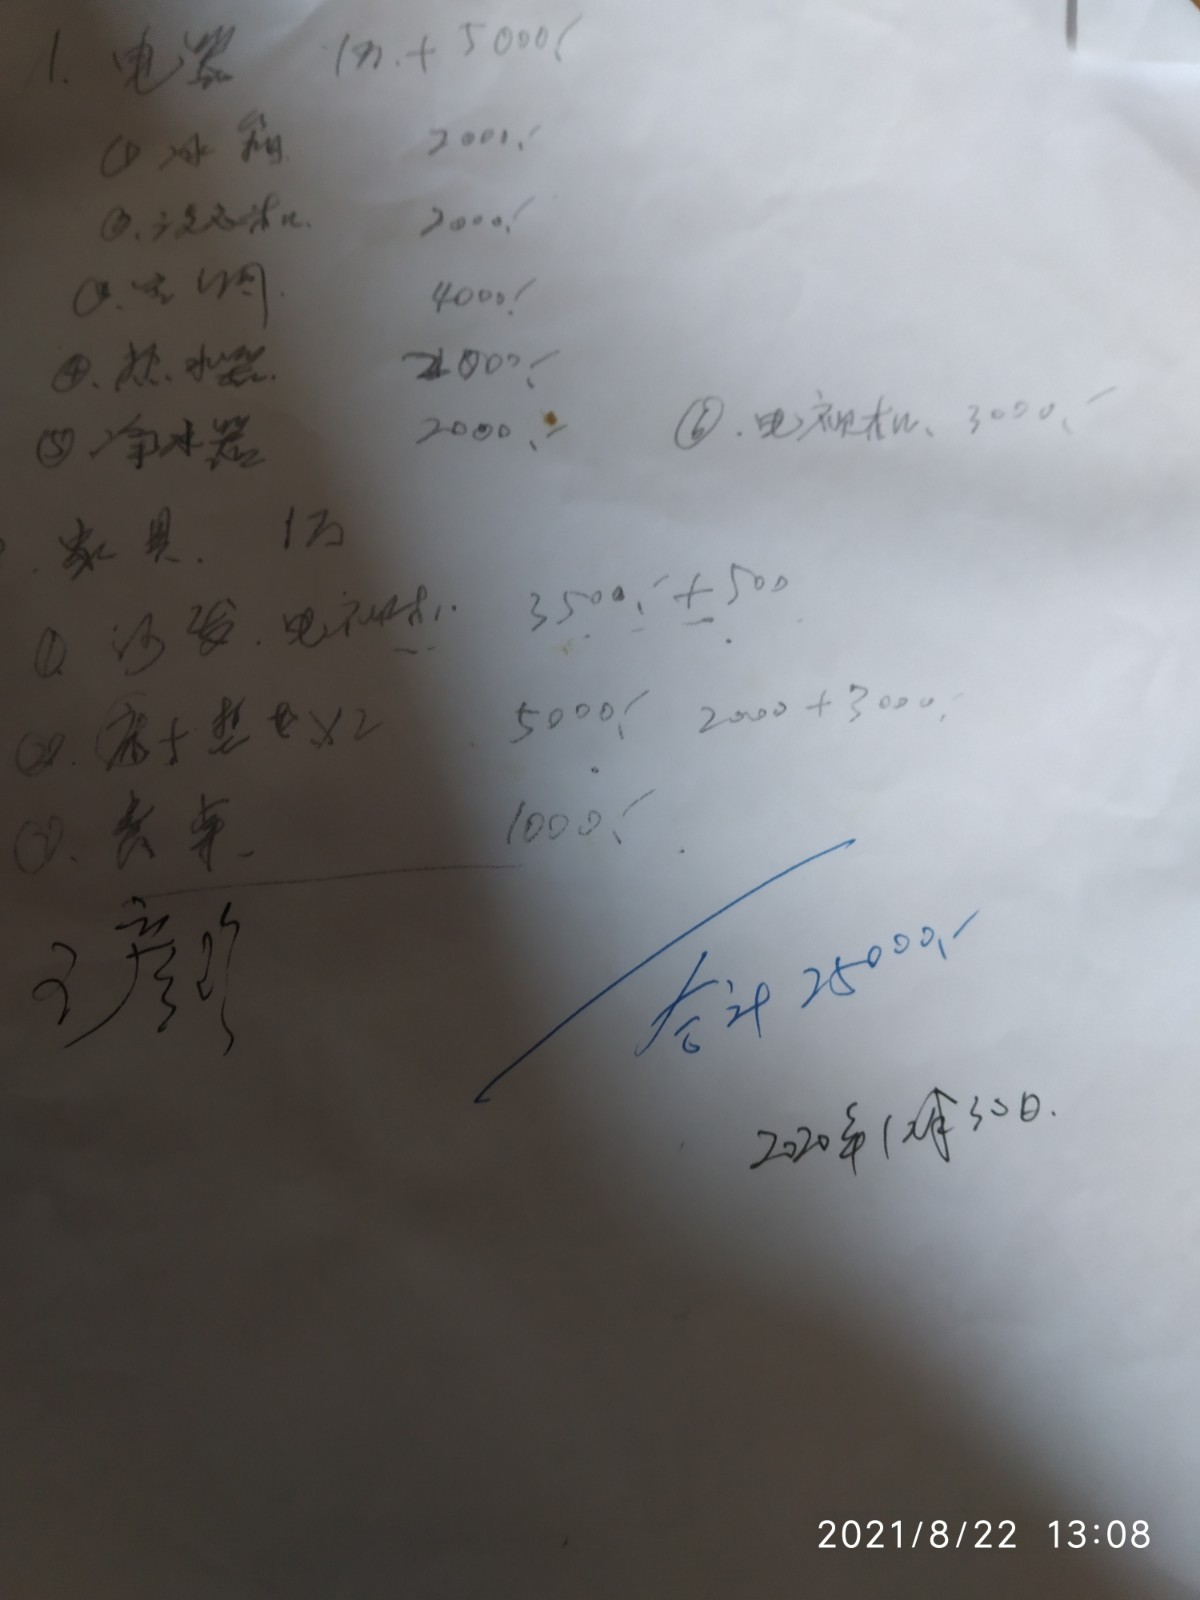 1. 电器 1万.+5000.-
① 冰箱 2000.-
②. 洗衣机. 2000.-
③. 空调. 4000.-
④. 热水器. 2000.-
⑤ 净水器 2000.- ⑥. 电视机、3000.-
. 家具. 1万
① 沙发. 电视柜.. 3500.-+500
②. 床+垫 x2 5000.- 2000+3000.
③. 餐桌 1000.-
合计 25000.-
2020年1月30日.
2021/8/22 13:08